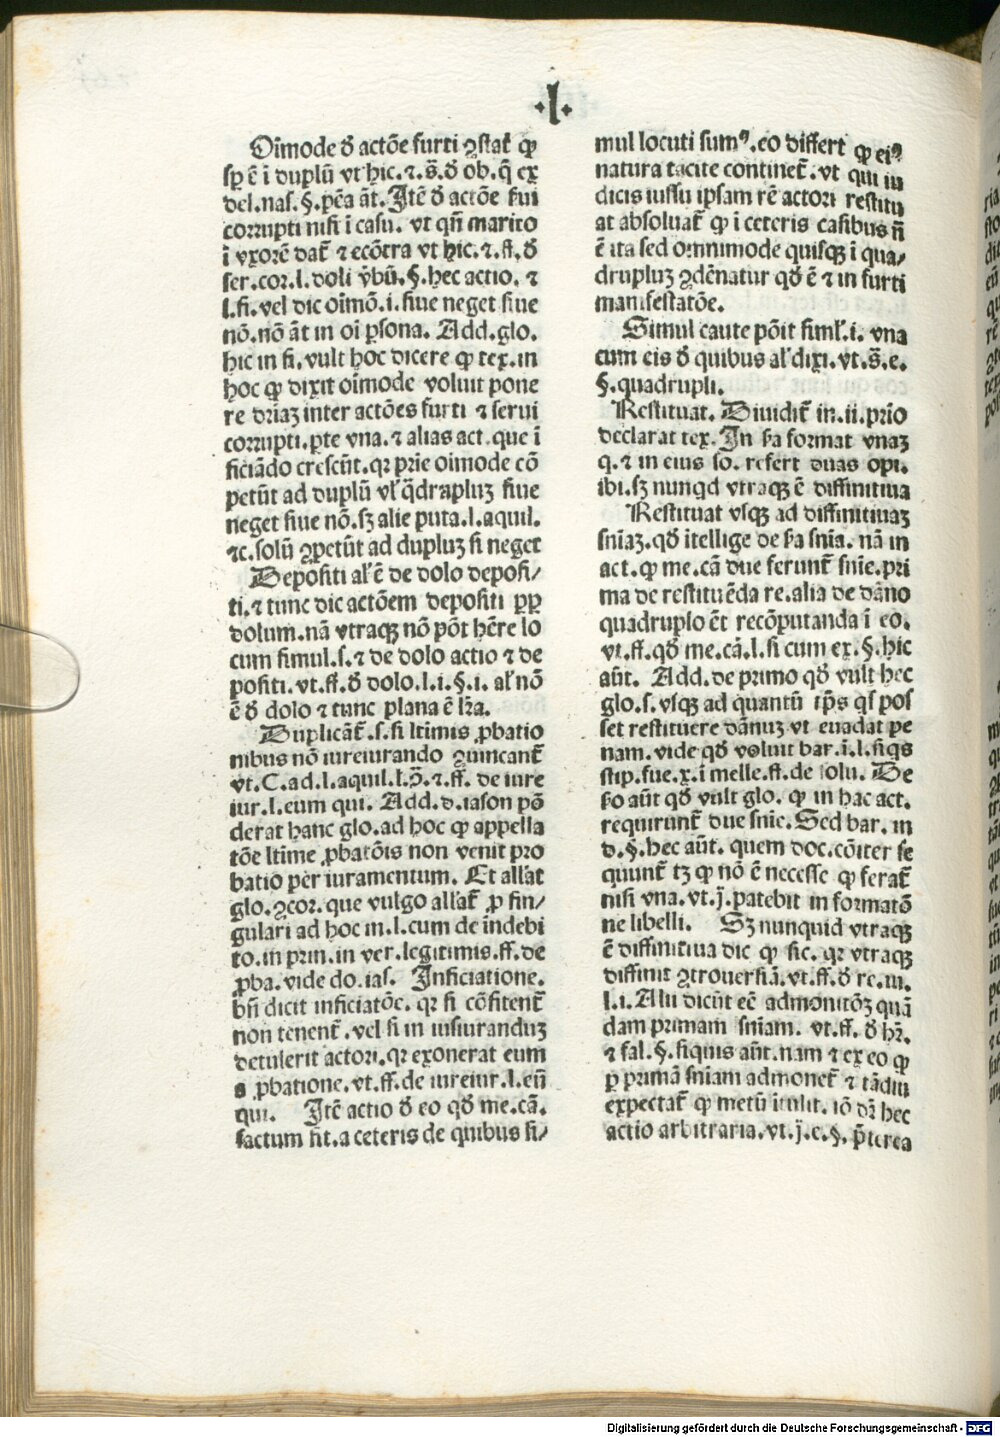 ·l·
Oimode đ actōe furti ꝯstat̄ ꝙ
sp̄ ē ī duplū vt hic.⁊.s̄.đ ob.q̄ ex
del.nas.§.pēa āt. Itē đ actōe ẜui
corrupti nisi ī casu. vt qn̄ marito
ī vxorē dat̄ ⁊ ecōtra vt hic.⁊.ff.đ
ser.cor.l.doli v̄bū.§.hec actio. ⁊
l.fi. vel dic oīmō.i. siue neget siue
nō.nō āt in oi ꝑsona. Add.glo.
hic in fi. vult hoc dicere ꝙ tex.in
hoc ꝙ dixit oīmode voluit pone
re dr̄iaꝫ inter actōes furti ⁊ serui
corrupti.ꝑte vna.⁊ alias act.que ī
ficiādo crescūt.qꝛ prie oimode cō
petūt ad duplū vl̓ q̄drupluꝫ siue
neget siue nō.sꝫ alie puta.l.aquil.
⁊c.solū ꝯpetūt ad dupluꝫ si neget
Depositi al̓ ē de dolo deposi/
ti.⁊ tunc dic actōem depositi ꝓp
dolum.nā vtraqꝫ nō pōt hēre lo
cum simul.s.⁊ de dolo actio ⁊ de
positi.vt.ff.đ dolo.l.i.§.i. al̓ nō
ē đ dolo ⁊ tunc plana ē lr̄a.
Duplicāt̄.s.si ltimis ꝓbatio
nibus nō iureiurando ꝯuincant̄
vt.C.ad.l.aquil.l.ꝯ̄.⁊.ff. de iure
iur.l.eum qui. Add.d.iason pō
derat hanc glo.ad hoc ꝙ appella
tōe ltime ꝓbatōis non venit pro
batio per iuramentum. Et all̓at
glo.ꝯcor. que vulgo all̓at̄ ꝓ sin/
gulari ad hoc in.l.cum de indebi
to.in prin.in ver.legitimis.ff.de
ꝓba.vide do.ias. Inficiatione.
bn̄ dicit inficiatōe. qꝛ si cōfitent̄
non tenent̄.vel si in iusiuranduꝫ
detulerit actori.qꝛ exonerat eum
a ꝓbatione.vt.ff.de iureiur.l.eū
qui. Itē actio đ eo qđ me.cā.
factum sit.a ceteris de quibus si/
mul locuti sumꝰ.eo differt ꝙ eiꝰ
natura tacite continet̄.vt qui iu
dicis iussu ipsam rē actori restitu
at absoluat̄ ꝙ ī ceteris casibus n̄
ē ita sed omnimode quisqꝫ ī qua/
drupluꝫ ꝯdēnatur qđ ē ⁊ in furti
manifestatōe.
Simul caute pōit siml̓.i. vna
cum eis đ quibus al̓ dixi.vt.s̄.e.
§.quadrupli.
Restituat. Diuidit̄ in.ii.prio
declarat tex. In ẜa format vnaꝫ
q.⁊ in eius so. refert duas opi.
ibi.sꝫ nunqd vtraqꝫ ē diffinitiua
Restituat vsqꝫ ad diffinitiuaꝫ
sniaꝫ.qđ itellige de ẜa snia. nā in
act.ꝙ me.cā due ferunt̄ snie.pri
ma de restituēda re.alia de dāno
quadruplo ēt recōputanda ī eo.
vt.ff.qđ me.cā.l.si cum ex.§.hic
aūt. Add.de primo qđ vult hec
glo.s.vsqꝫ ad quantū ip̄s qs̓ pos
set restituere dānuꝫ vt euadat pe
nam.vide qđ voluit bar.ī.l.siqs
stip.fue.x.ī melle.ff.de solu. De
ẜo aūt qđ vult glo. ꝙ in hac act.
requirunt̄ due snie. Sed bar. in
d.§.hec aūt. quem doc.cōiter se
quunt̄ tꝫ ꝙ nō ē necesse ꝙ ferat̄
nisi vna.vt.j̄.patebit in formatō
ne libelli. Sꝫ nunquid vtraqꝫ
ē diffinitiua dic ꝙ sic. qꝛ vtraqꝫ
diffinit ꝯtrouersiā.vt.ff.đ re.iu.
l.i. Alii dicūt eē admonitōꝫ quā
dam primam sniam. vt.ff. đ hr̄.
⁊ fal.§.siquis aūt.nam ⁊ ex eo ꝙ
ꝑ primā sniam admonet̄ ⁊ tādiu
expectat̄ ꝙ metū ītulit. iō dr̄ hec
actio arbitraria.vt.j̄.e.§.p̄terea
Digitalisierung gefördert durch die Deutsche Forschungsgemeinschaft - DFG